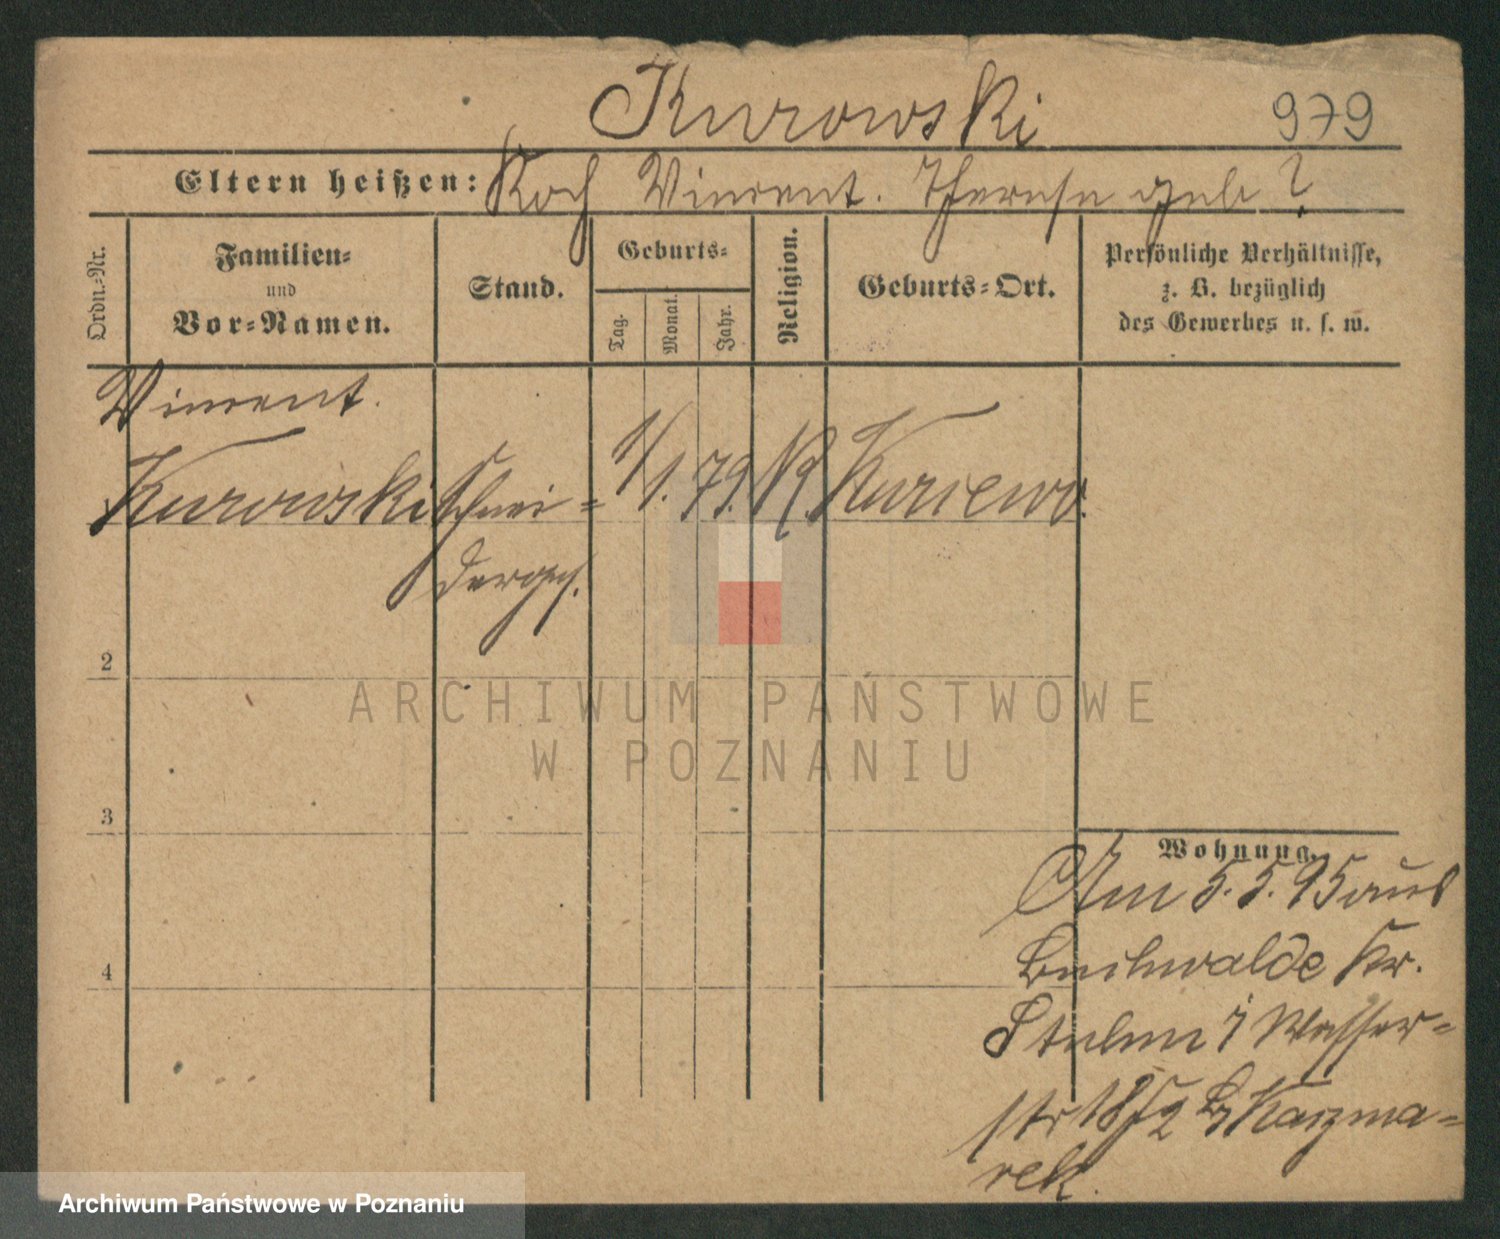 Kurowski 979
Eltern heißen: Koch Vincent. Therese geb ?
Ordn.-Nr.
Familien-
und
Vor-Namen.
Stand.
Geburts-
Tag.
Monat.
Jahr.
Religion.
Geburts-Ort.
Persönliche Verhältnisse,
z. B. bezüglich
des Gewerbes u. s. w.
Vincent.
Kurowski Schnei- 1/1. 79. K. Kuriewo.
derges.
2
3
4
Wohnung.
Am 5.5.95 aus
Buchwalde Kr.
Stuhm Wasser-
str 18/2 B Kaczma-
rek.
ARCHIWUM PAŃSTWOWE
W POZNANIU
Archiwum Państwowe w Poznaniu